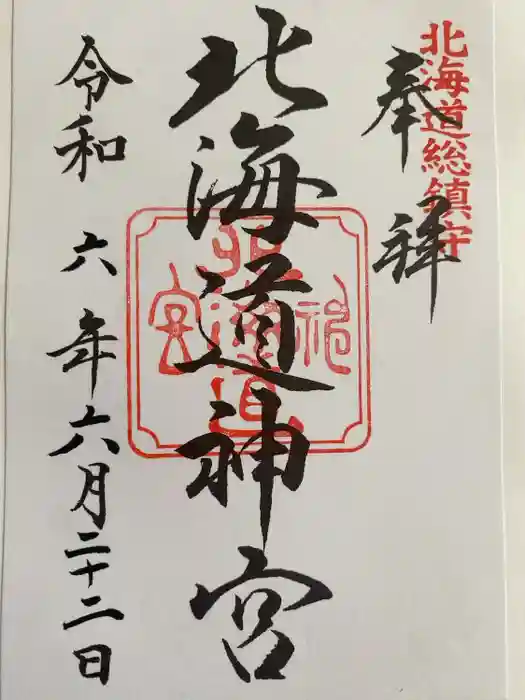 北海道総鎮守
奉拝
北海道神宮
北海道神宮
令和六年六月二十二日